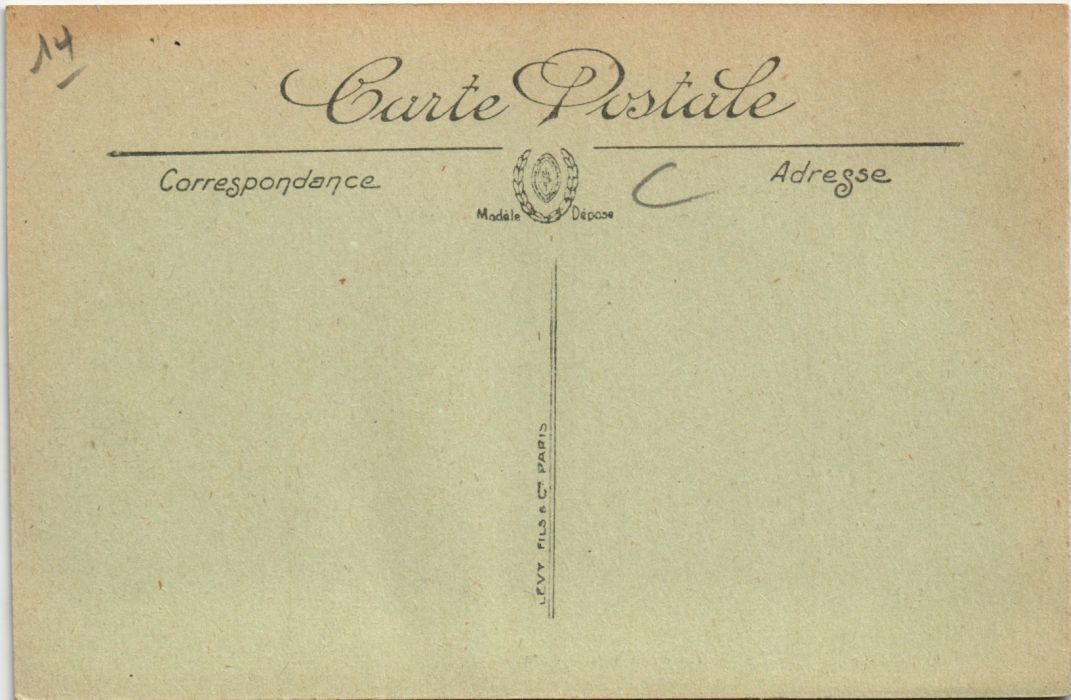 14
Carte Postale
Correspondance
Adresse
C
Modèle Déposé
LEVY FILS & Cie PARIS